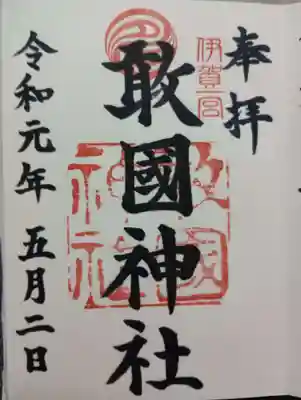 奉拝
伊賀一宮
敢國神社
令和元年 五月二日